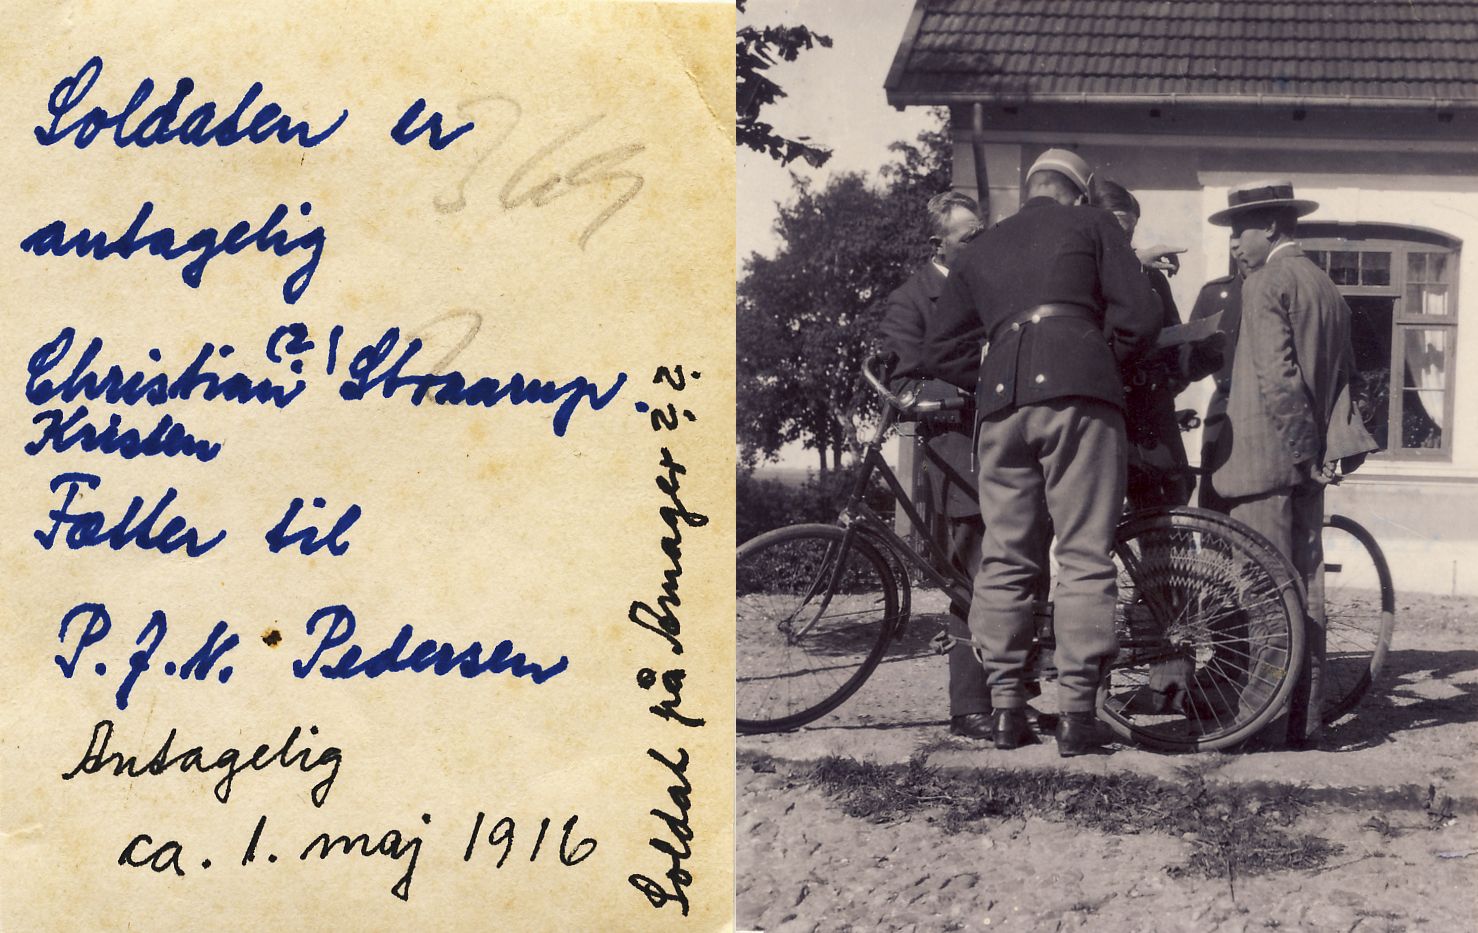 Soldaten er
369
antagelig
(?)
Christian / Straarup.
Kristen
Fætter til
P.J.N. Pedersen
Antagelig
ca. 1. maj 1916
Soldat på Amager ? ?